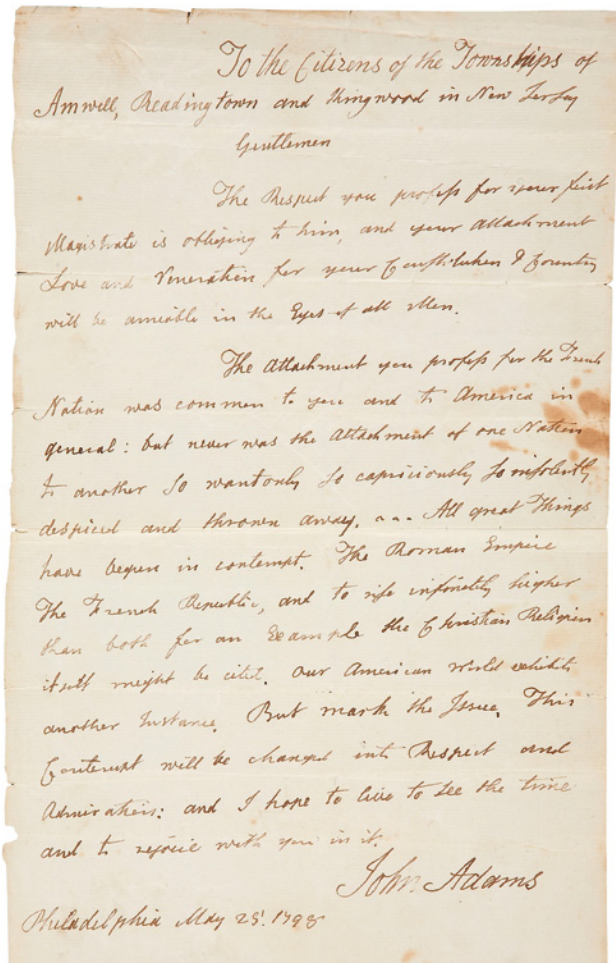 To the Citizens of the Townships of
Amwell, Readingtown and Kingwood in New Jersey
Gentlemen
The Respect you profess for your first
Magistrate is obliging to him, and your attachment
Love and Veneration for your Constitution & Country
will be amiable in the Eyes of all Men.
The Attachment you profess for the French
Nation was common to you and to America in
general: but never was the Attachment of one Nation
to another so wantonly so capriciously so insolently
despiced and thrown away. --- All great Things
have begun in contempt. The Roman Empire
The French Republic, and to rise infinitely higher
than both for an Example the Christian Religion
itself might be cited. Our American world exhibits
another Instance. But mark the Issue. This
Contempt will be changed into Respect and
Admiration: and I hope to live to see the time
and to rejoice with you in it.
John Adams
Philadelphia May 25. 1798